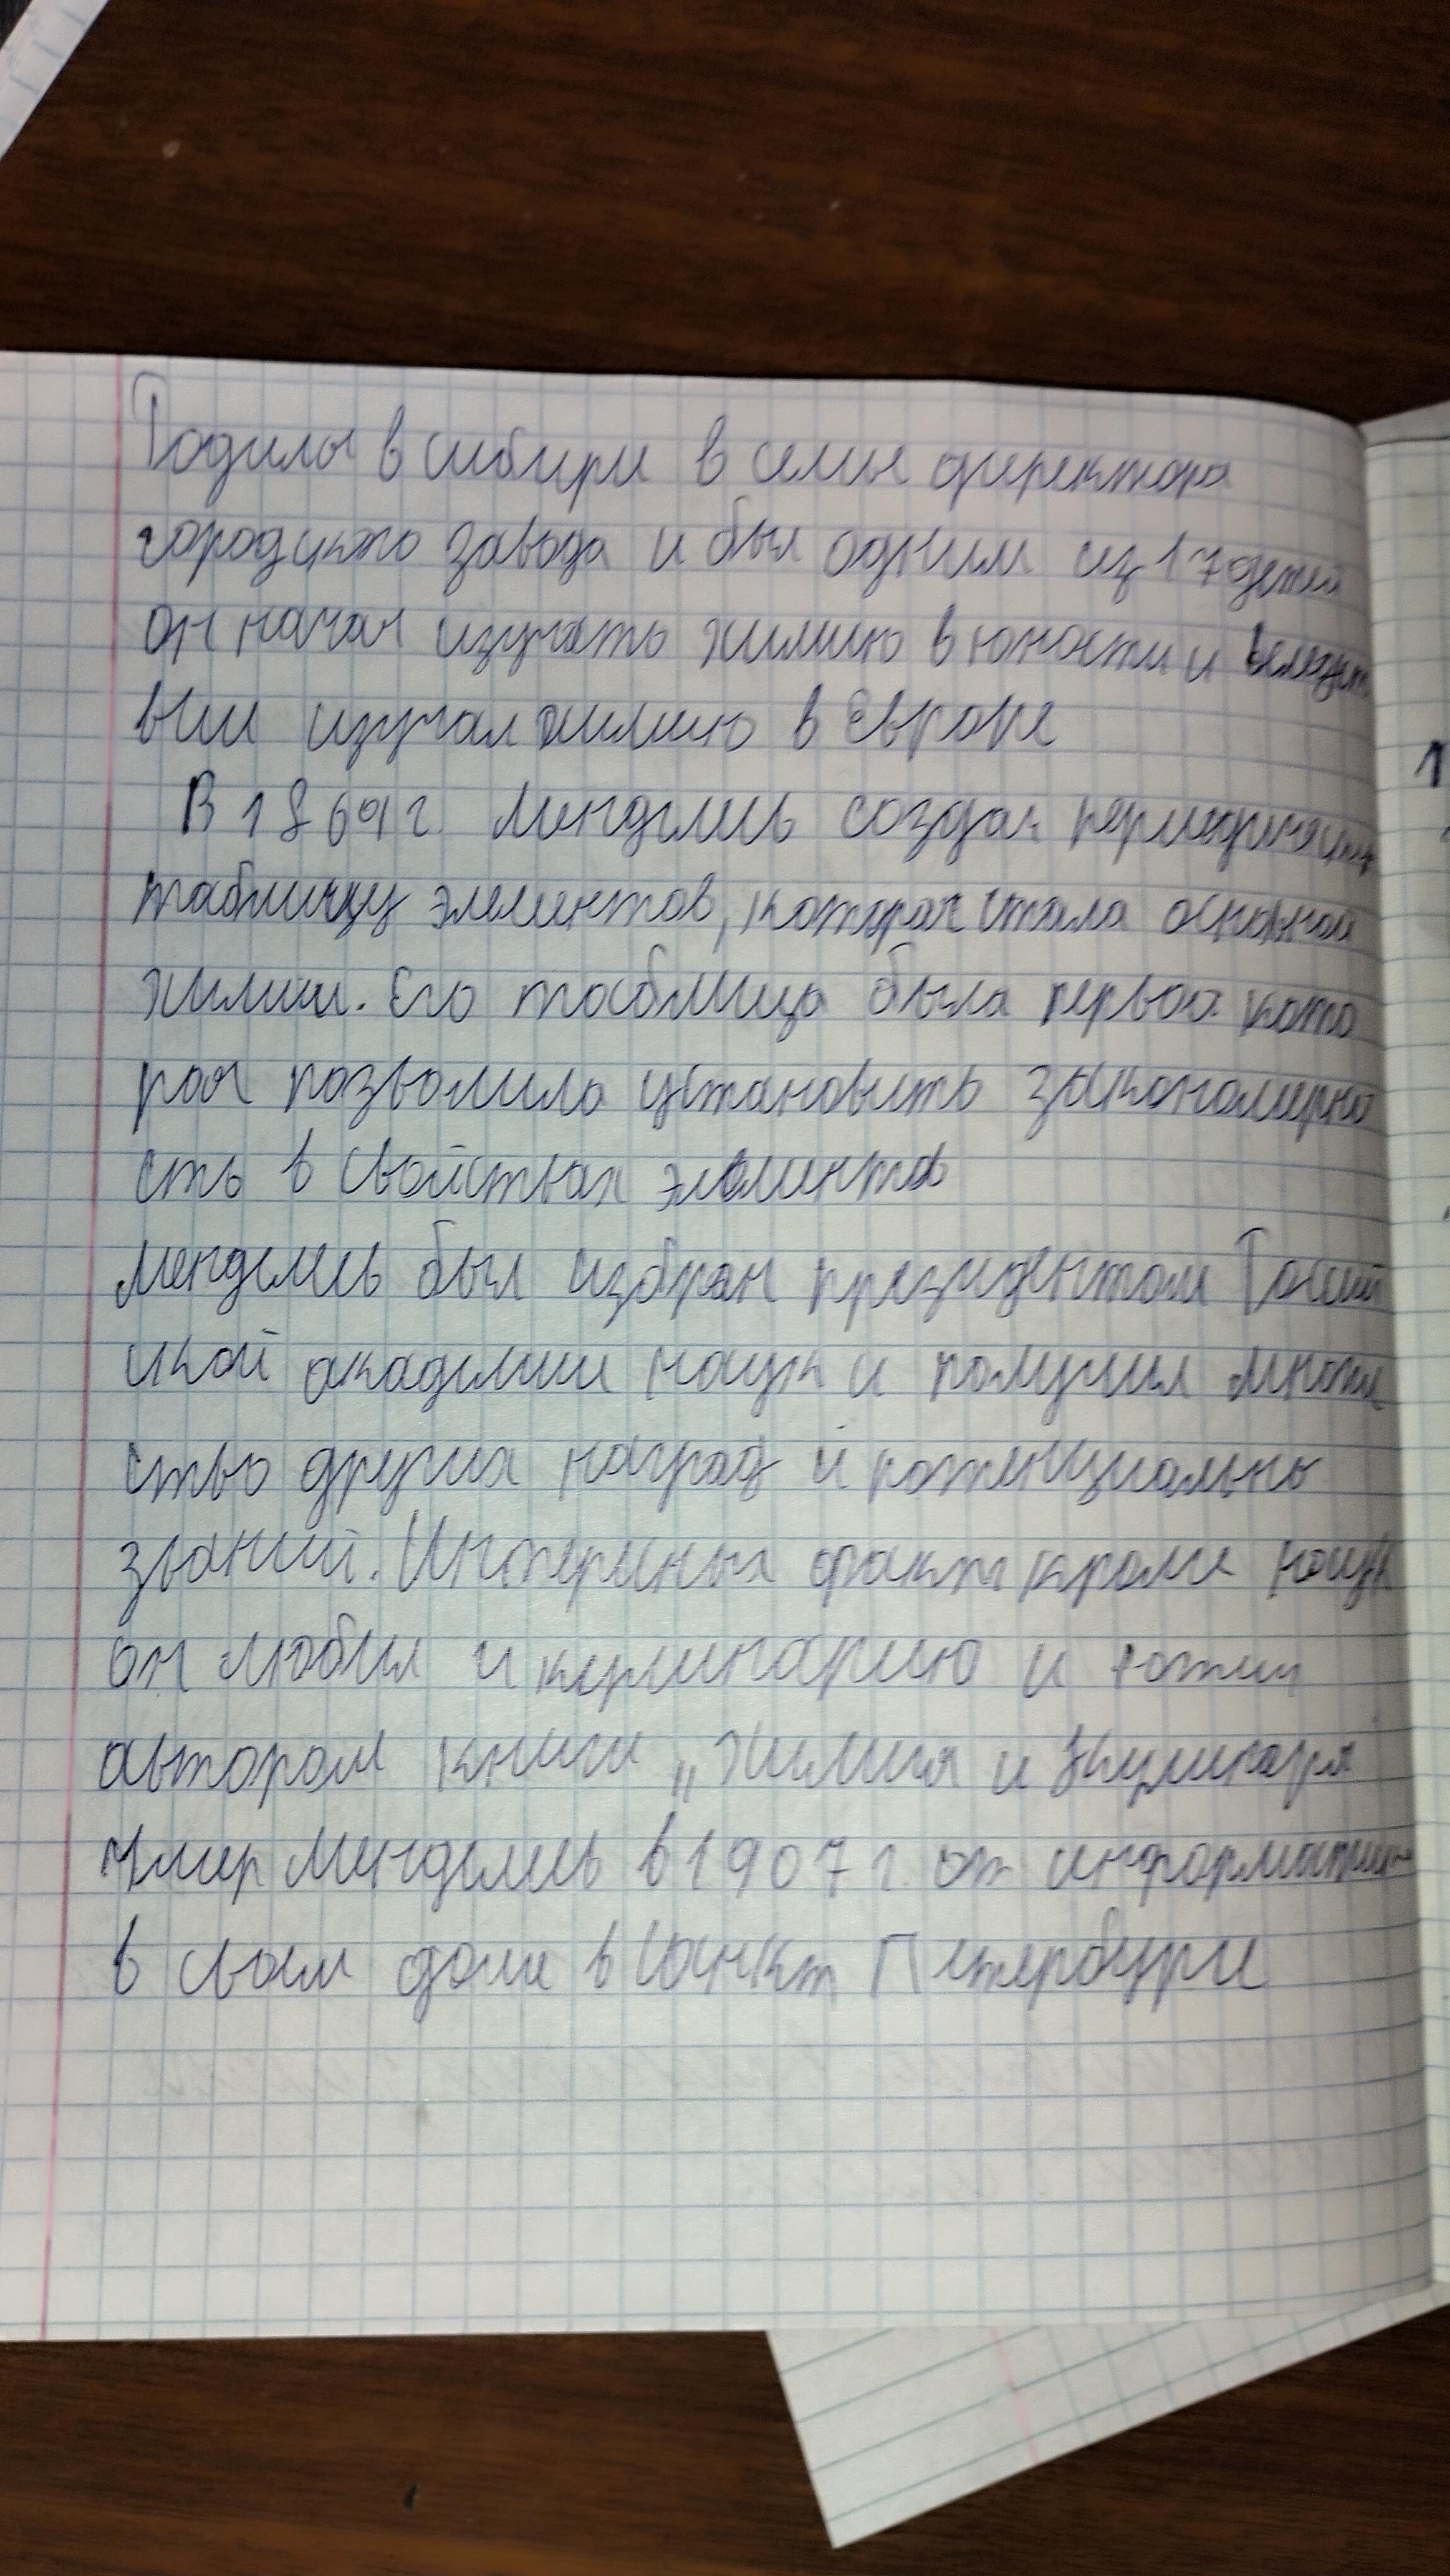 Родилсы в сибири в семье директора
городского завода и был одним из 17 детей
он начал изучать химию в юности и
изучал химию в Европе
В 1869 г. Менделеев создал периодическую
таблицу элементов, которая стала основной
химии. Его таблица была первой кото
рая позволила установить закономерно
сть в свойствах элементов
Менделеев был избран президентом Россий
ской академии наук и получил множе
ство других наград и потенциально
званий. Интересных факт кроме наук
он любил и кулинарию и
автором книги „Химия и кулинаря
Умер Менделеев в 1907 г. от
в своем доме в Санкт Петербурге
1